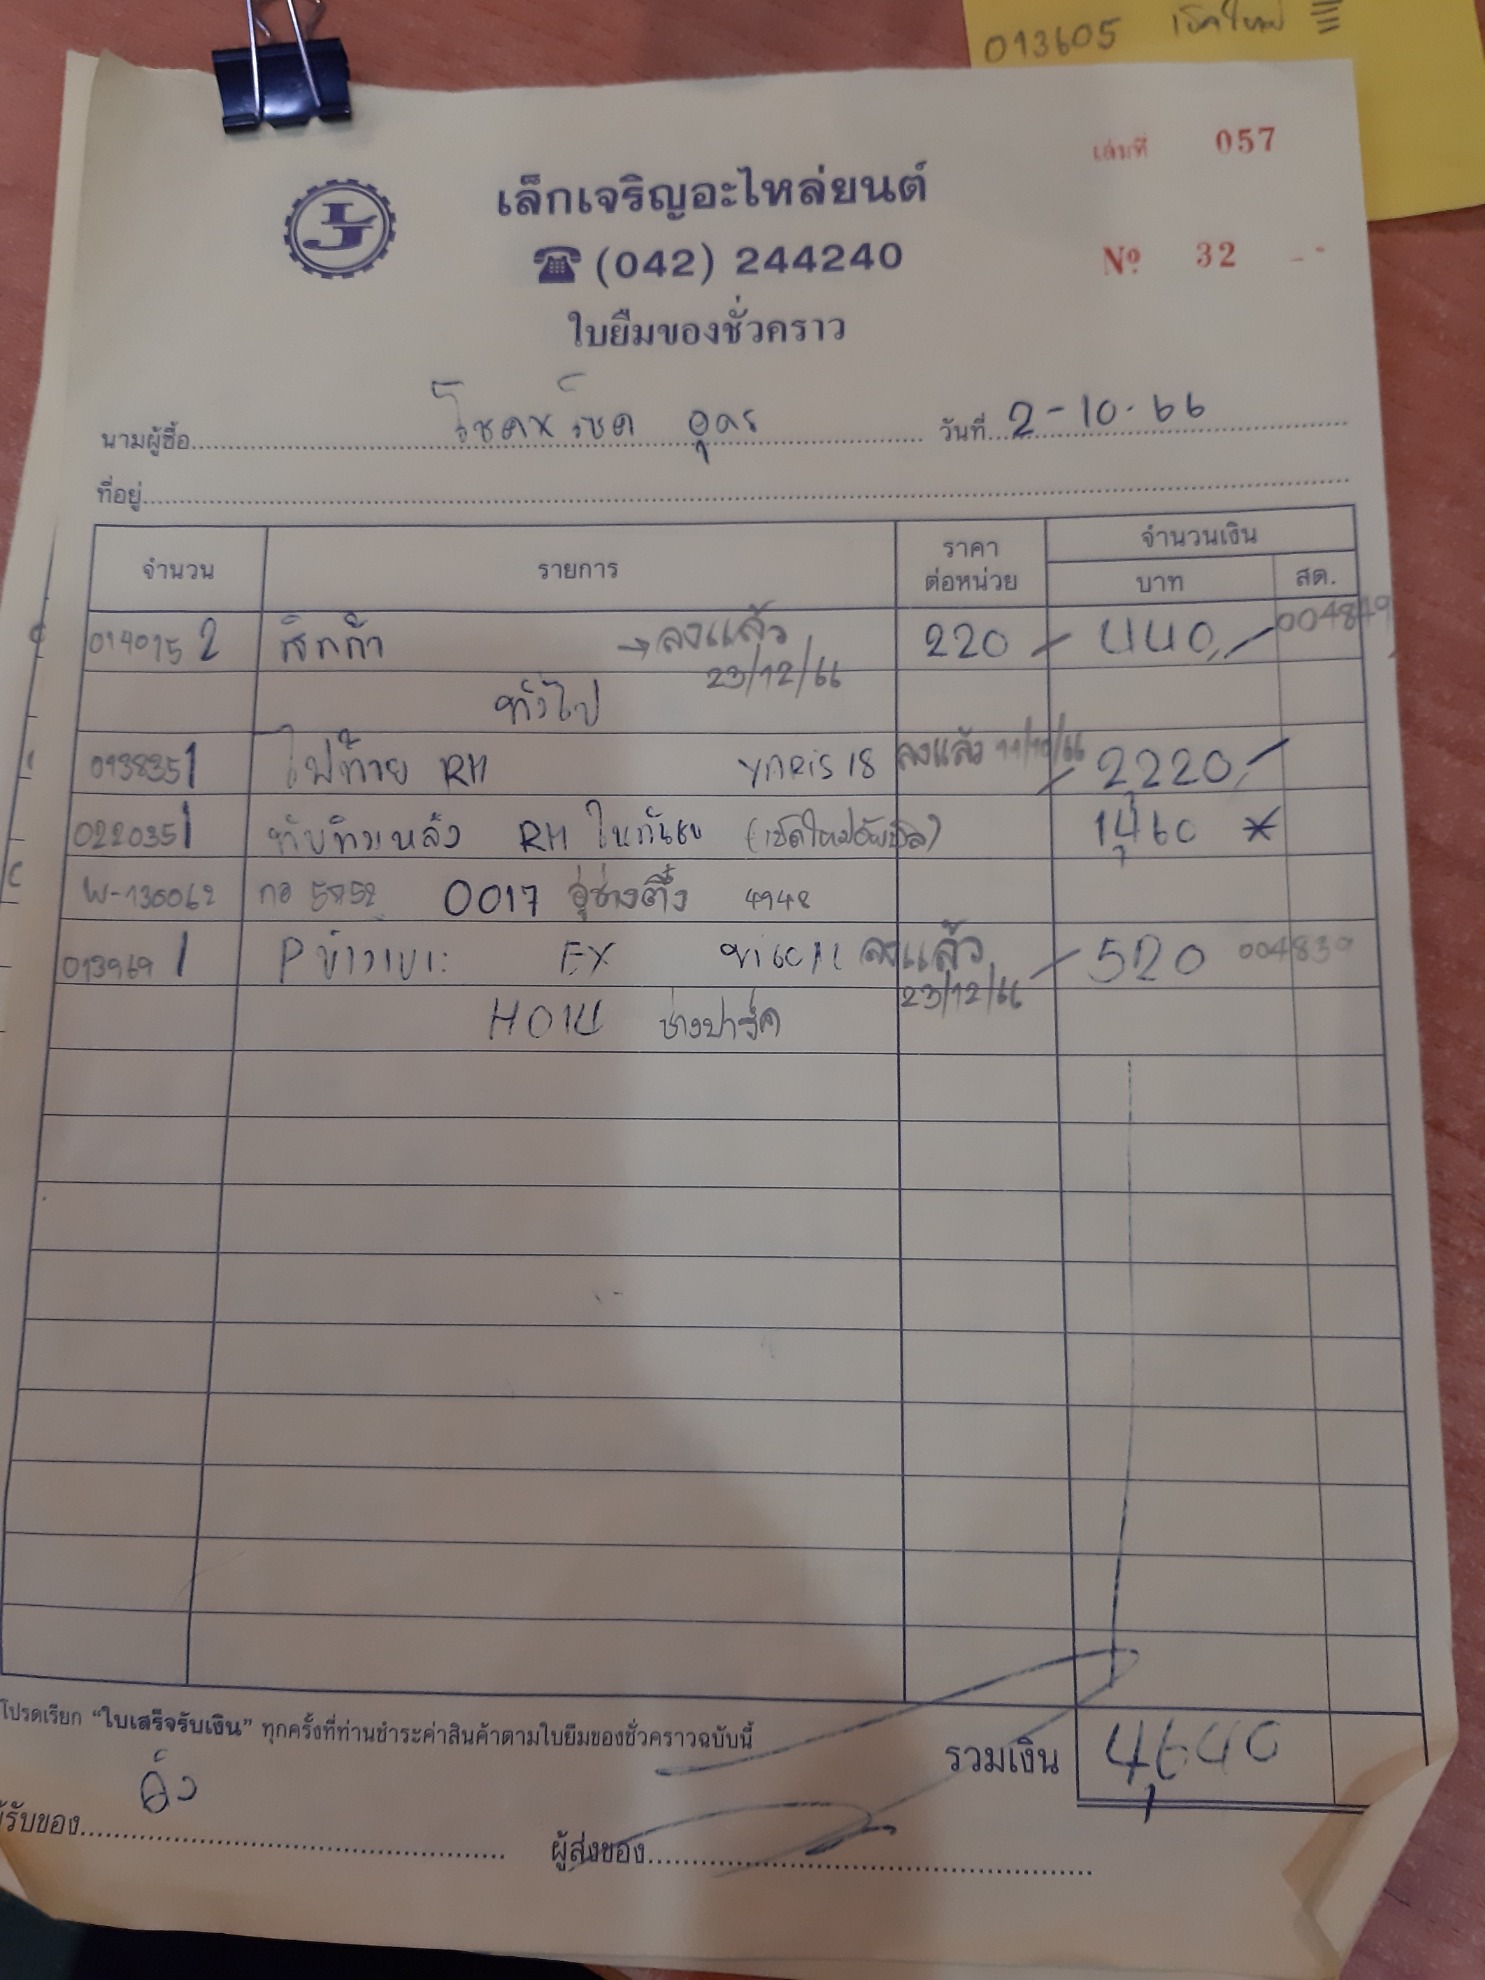 013605
เล่มที่ 057
LJ
เล็กเจริญอะไหล่ยนต์
(042) 244240
Nº 32
ใบยืมของชั่วคราว
นามผู้ซื้อ อุดร วันที่ 2-10-66
ที่อยู่
จำนวน รายการ ราคาต่อหน่วย จำนวนเงิน
บาท สต.
014015 2 →ลงแล้ว 220 440 004849
23/12/66
ทั่วไป
013835 1 ไฟท้าย RH YARIS 18 ลงแล้ว 11/10/66 2,220
022035 1 ทับทิมหลัง RH ในกันชน 1,460 *
W-130062 0017 อู่ช่างตึ๋ง 4948
013969 1 EX ลงแล้ว 520 004839
23/12/66
ช่างปาร์ค
โปรดเรียก “ใบเสร็จรับเงิน” ทุกครั้งที่ท่านชำระค่าสินค้าตามใบยืมของชั่วคราวฉบับนี้
รวมเงิน 4,640
ผู้รับของ ผู้ส่งของ